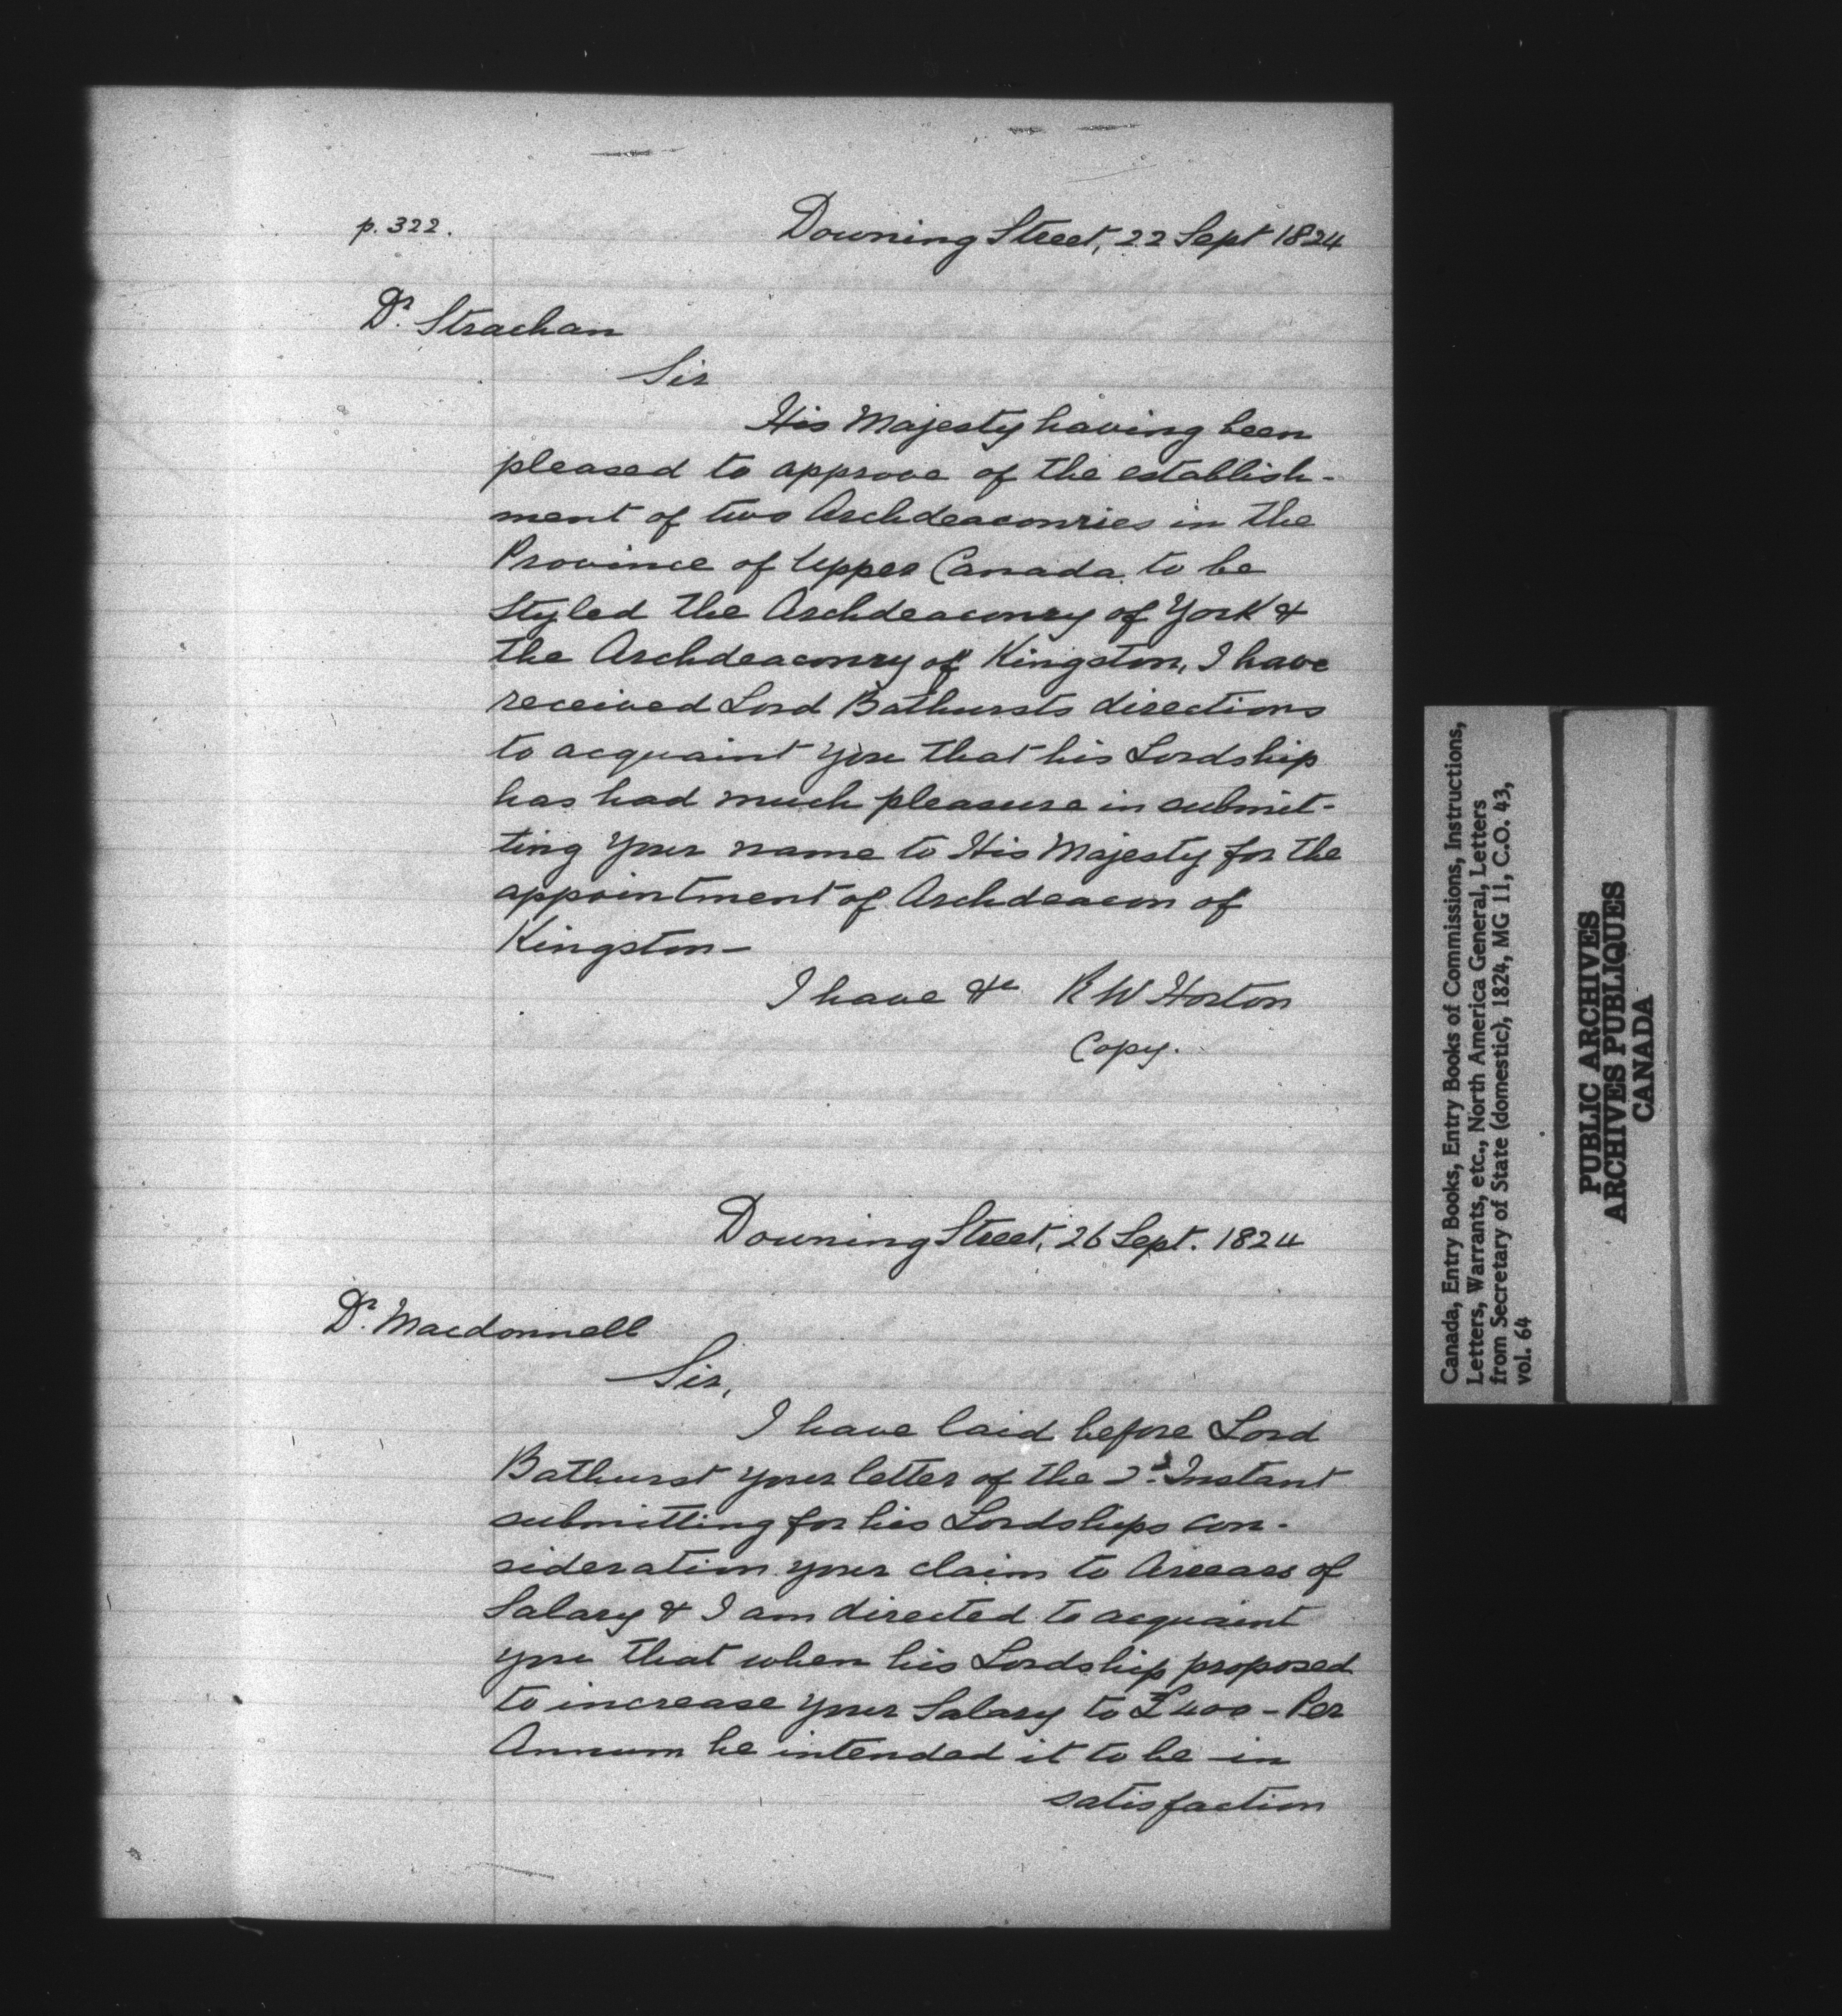 p. 322.
Downing Street, 22 Sept 1824
Dr. Strachan
Sir
His Majesty having been
pleased to approve of the establish-
ment of two Archdeaconries in the
Province of Upper Canada to be
styled the Archdeaconry of York &
the Archdeaconry of Kingston, I have
received Lord Bathursts directions
to acquaint you that his Lordship
has had much pleasure in submit-
ting your name to His Majesty for the
appointment of Archdeacon of
Kingston—
I have &c R W Horton
Copy.
Downing Street, 26 Sept. 1824
Dr. Macdonnell
Sir,
I have laid before Lord
Bathurst your letter of the 2d. Instant
submitting for his Lordships con-
sideration your claim to Arrears of
Salary & I am directed to acquaint
you that when his Lordship proposed
to increase your Salary to £400 - Per
Annum he intended it to be in
satisfaction
Canada, Entry Books, Entry Books of Commissions, Instructions,
Letters, Warrants, etc., North America General, Letters
from Secretary of State (domestic), 1824, MG 11, C.O. 43,
vol. 64
PUBLIC ARCHIVES
ARCHIVES PUBLIQUES
CANADA